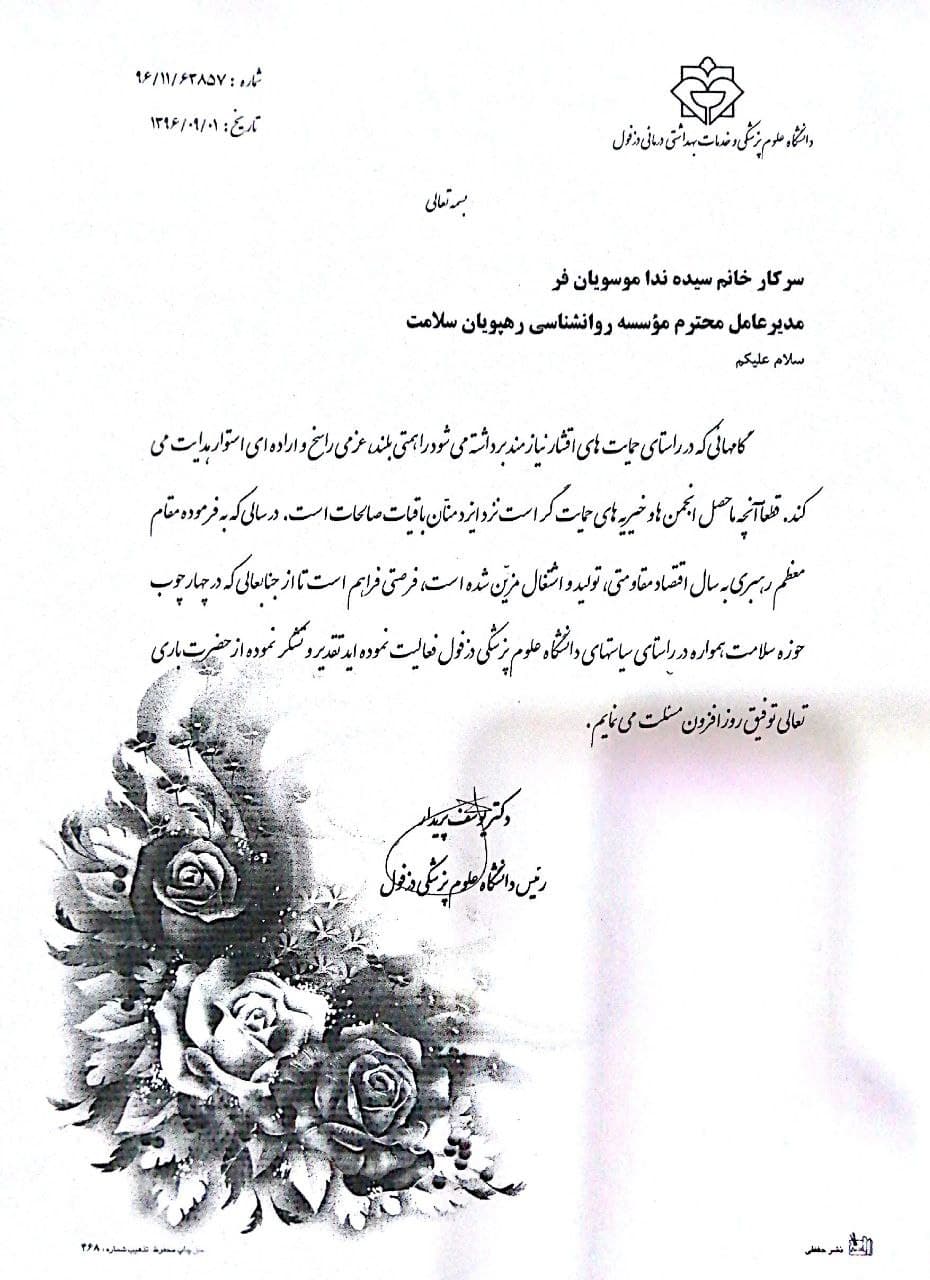 شماره : ۹۶/۱۱/۶۳۸۵۷
تاریخ : ۱۳۹۶/۰۹/۰۱
دانشگاه علوم پزشکی و خدمات بهداشتی درمانی دزفول
بسمه تعالی
سرکار خانم سیده ندا موسویان فر
مدیرعامل محترم مؤسسه روانشناسی رهپویان سلامت
سلام علیکم
گامهائی که در راستای حمایت های اقشار نیازمند برداشته می شود راهمتی بلند، عزمی راسخ و اراده ای استوار هدایت می
کند. قطعاً آنچه ماحصل انجمن ها و خیریه های حمایت گر است نزد ایزد منّان باقیات صالحات است. در سالی که به فرموده مقام
معظم رهبری به سال اقتصاد مقاومتی، تولید و اشتغال مزیّن شده است، فرصتی فراهم است تا از جنابعالی که در چهارچوب
حوزه سلامت همواره در راستای سیاستهای دانشگاه علوم پزشکی دزفول فعالیت نموده اید تقدیر و تشکر نموده از حضرت باری
تعالی توفیق روزافزون مسئلت می نمایم .
دکتر یوسف پریدار
رئیس دانشگاه علوم پزشکی دزفول
نشر حفظی
چاپ محفوظ تذهیب شماره : ۴۶۸